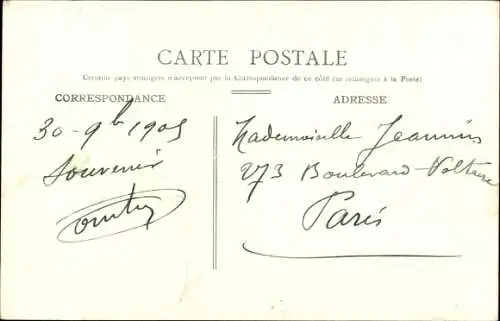 CARTE POSTALE
Certains pays étrangers n'acceptent pas la Correspondance de ce côté (se renseigner à la Poste)
CORRESPONDANCE
ADRESSE
30-9b 1905
Souvenir
Mademoiselle Jeannin
273 Boulevard-Voltaire
Paris